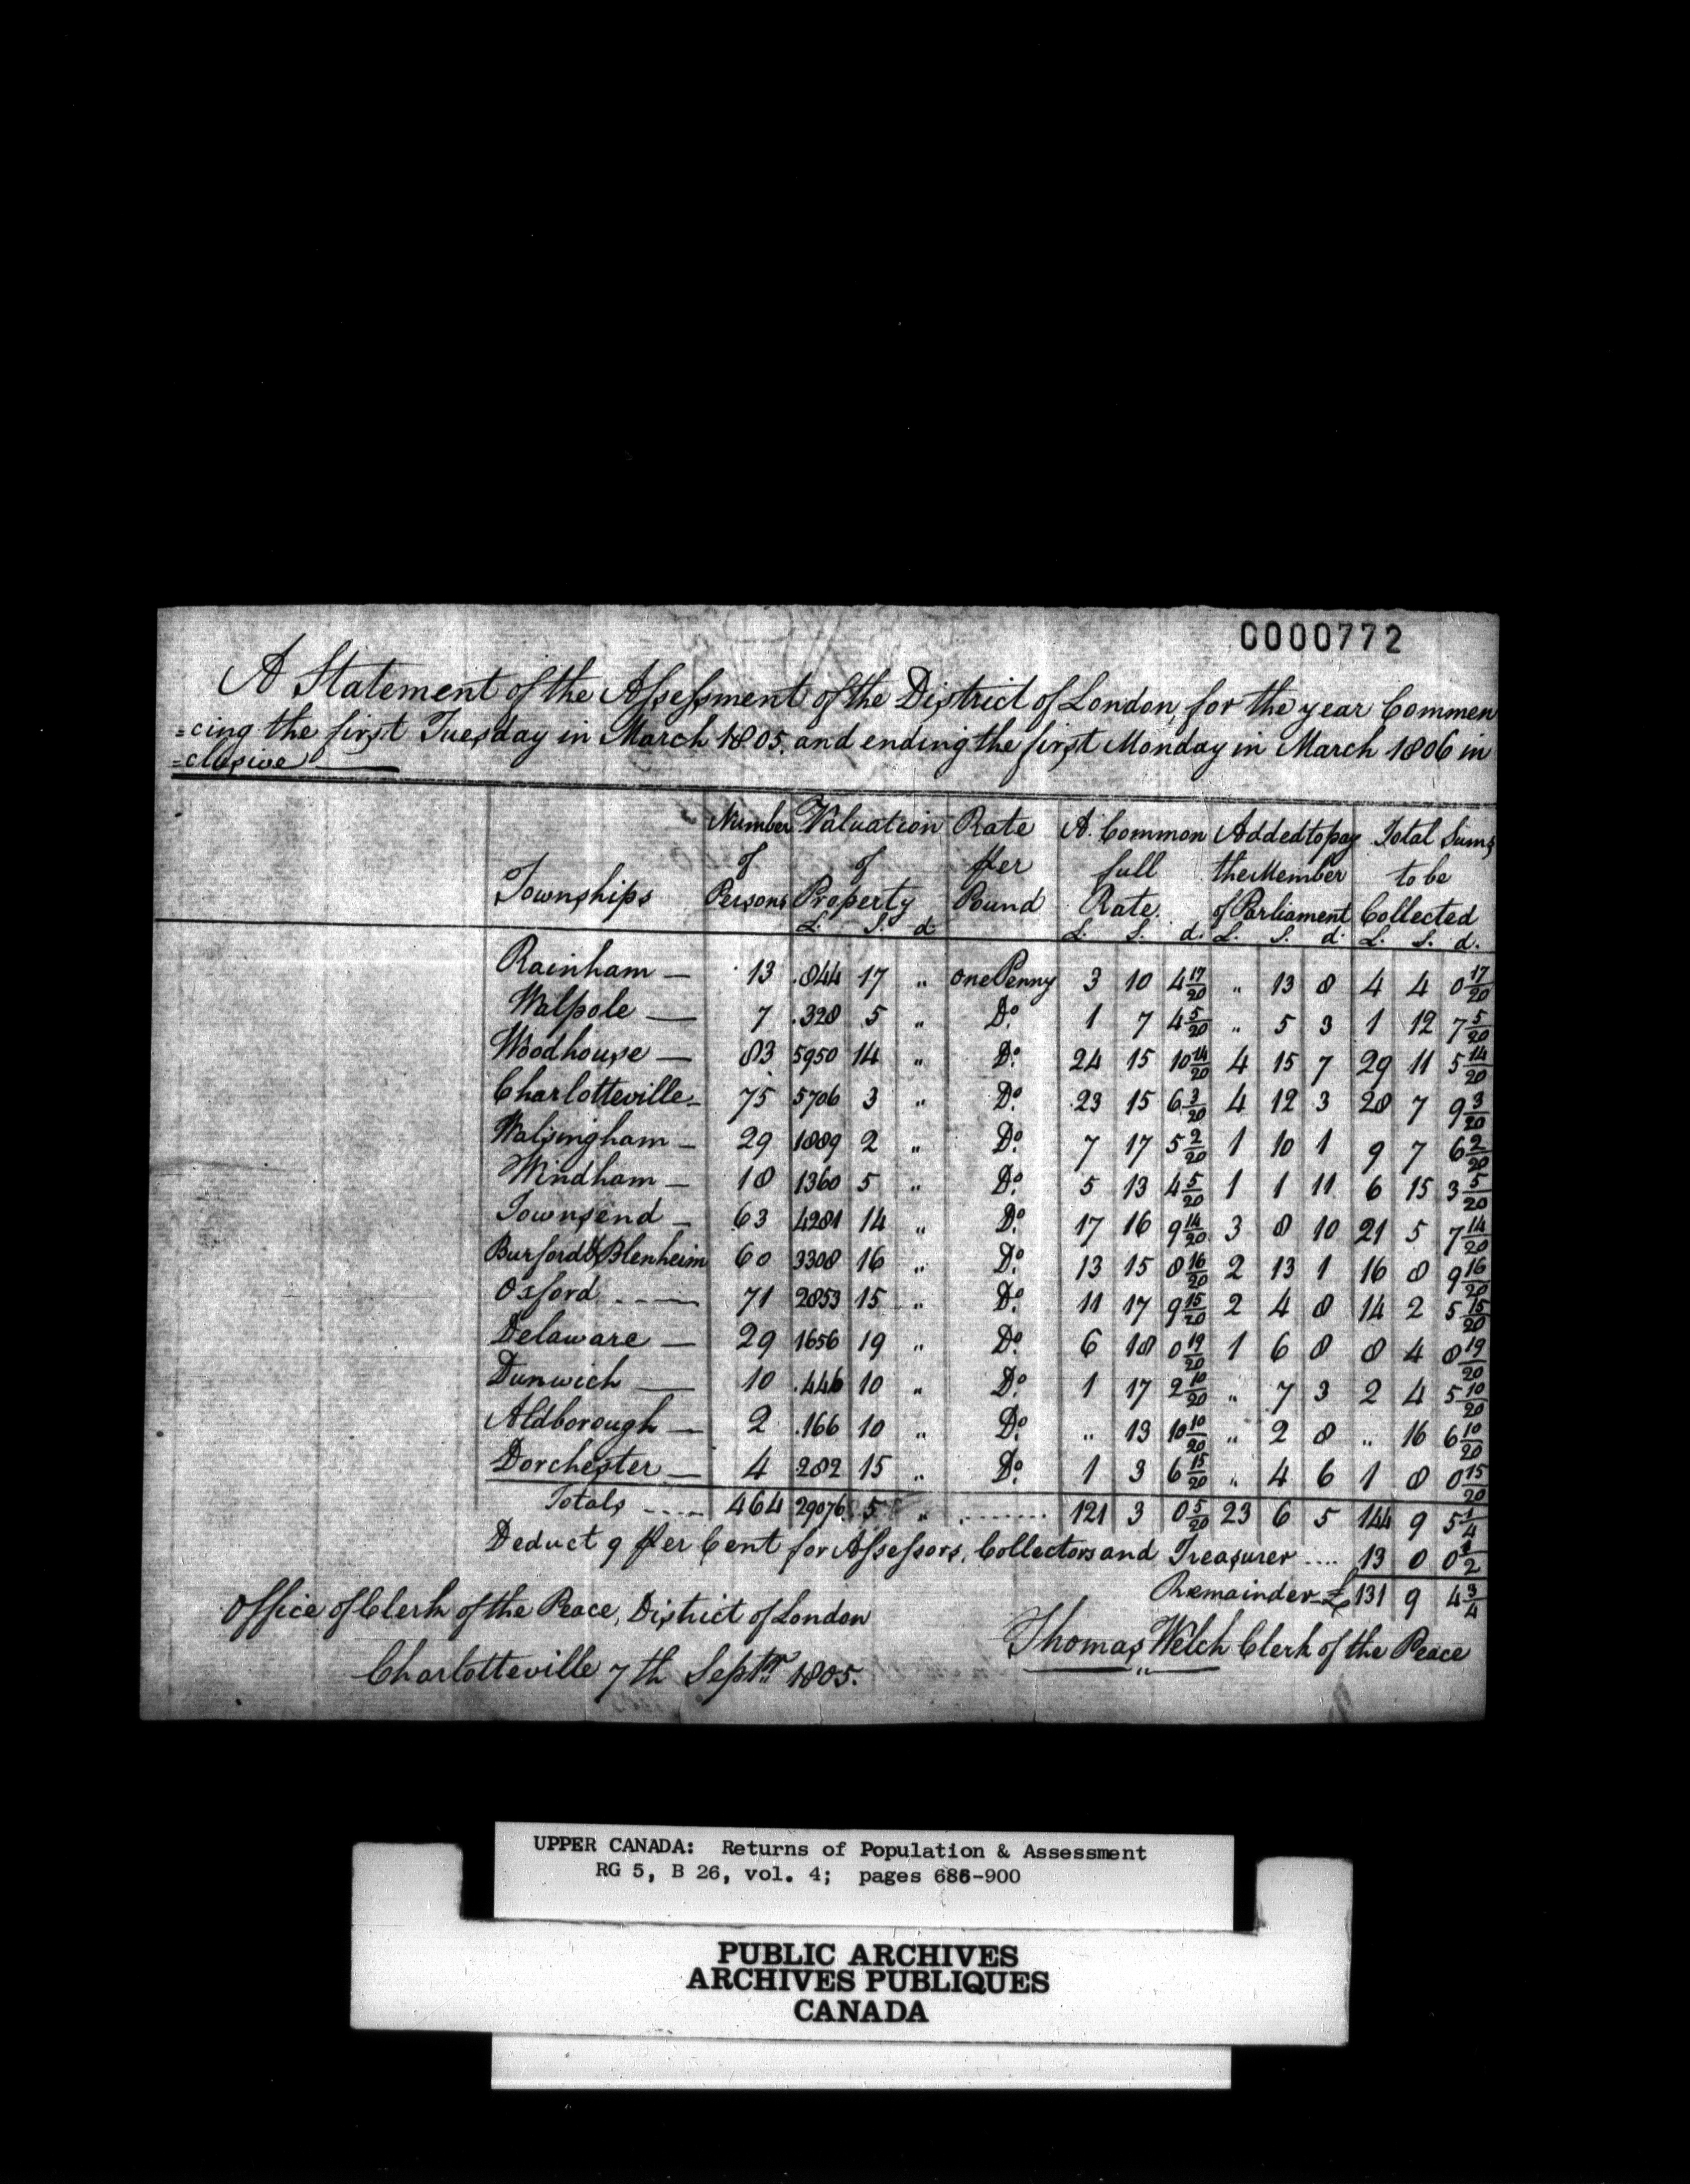 C000772
A Statement of the Assessment of the District of London, for the year Commen
=cing the first Tuesday in March 1805. and ending the first Monday in March 1806 in
=clusive
Townships | Number of Persons | Valuation of Property L. S. d. | Rate per Pound | A Common full Rate. L. S. d. | Added to pay the Member of Parliament L. S. d. | Total Sums to be Collected L. S. d.
Rainham — 13 .844 17 „ one Penny 3 10 4 17/20 „ 13 8 4 4 0 17/20
Walpole — 7 .328 5 „ Do. 1 7 4 5/20 „ 5 3 1 12 7 5/20
Woodhouse — 83 5950 14 „ Do. 24 15 10 14/20 4 15 7 29 11 5 14/20
Charlotteville — 75 5706 3 „ Do. 23 15 6 3/20 4 12 3 28 7 9 3/20
Walsingham — 29 1889 2 „ Do. 7 17 5 2/20 1 10 1 9 7 6 2/20
Windham — 18 1360 5 „ Do. 5 13 4 5/20 1 1 11 6 15 3 5/20
Townsend — 63 4281 14 „ Do. 17 16 9 14/20 3 8 10 21 5 7 14/20
Burford & Blenheim 60 3308 16 „ Do. 13 15 8 16/20 2 13 1 16 8 9 16/20
Oxford ---- 71 2853 15 „ Do. 11 17 9 15/20 2 4 8 14 2 5 15/20
Delaware — 29 1656 19 „ Do. 6 18 0 19/20 1 6 8 8 4 8 19/20
Dunwich — 10 .446 10 „ Do. 1 17 2 10/20 „ 7 3 2 4 5 10/20
Aldborough — 2 .166 10 „ Do. „ 13 10 10/20 „ 2 8 „ 16 6 10/20
Dorchester — 4 282 15 „ Do. 1 3 6 15/20 „ 4 6 1 8 0 15/20
Totals ---- 464 29076 5 „ ........ 121 3 0 5/20 23 6 5 144 9 5 1/4
Deduct 9 per Cent for Assessors, Collectors and Treasurer .... 13 0 0 1/2
Remainder £ 131 9 4 3/4
Office of Clerk of the Peace, District of London
Thomas Welch Clerk of the Peace
Charlotteville 7th Septr. 1805.
UPPER CANADA: Returns of Population & Assessment
RG 5, B 26, vol. 4; pages 686-900
PUBLIC ARCHIVES
ARCHIVES PUBLIQUES
CANADA